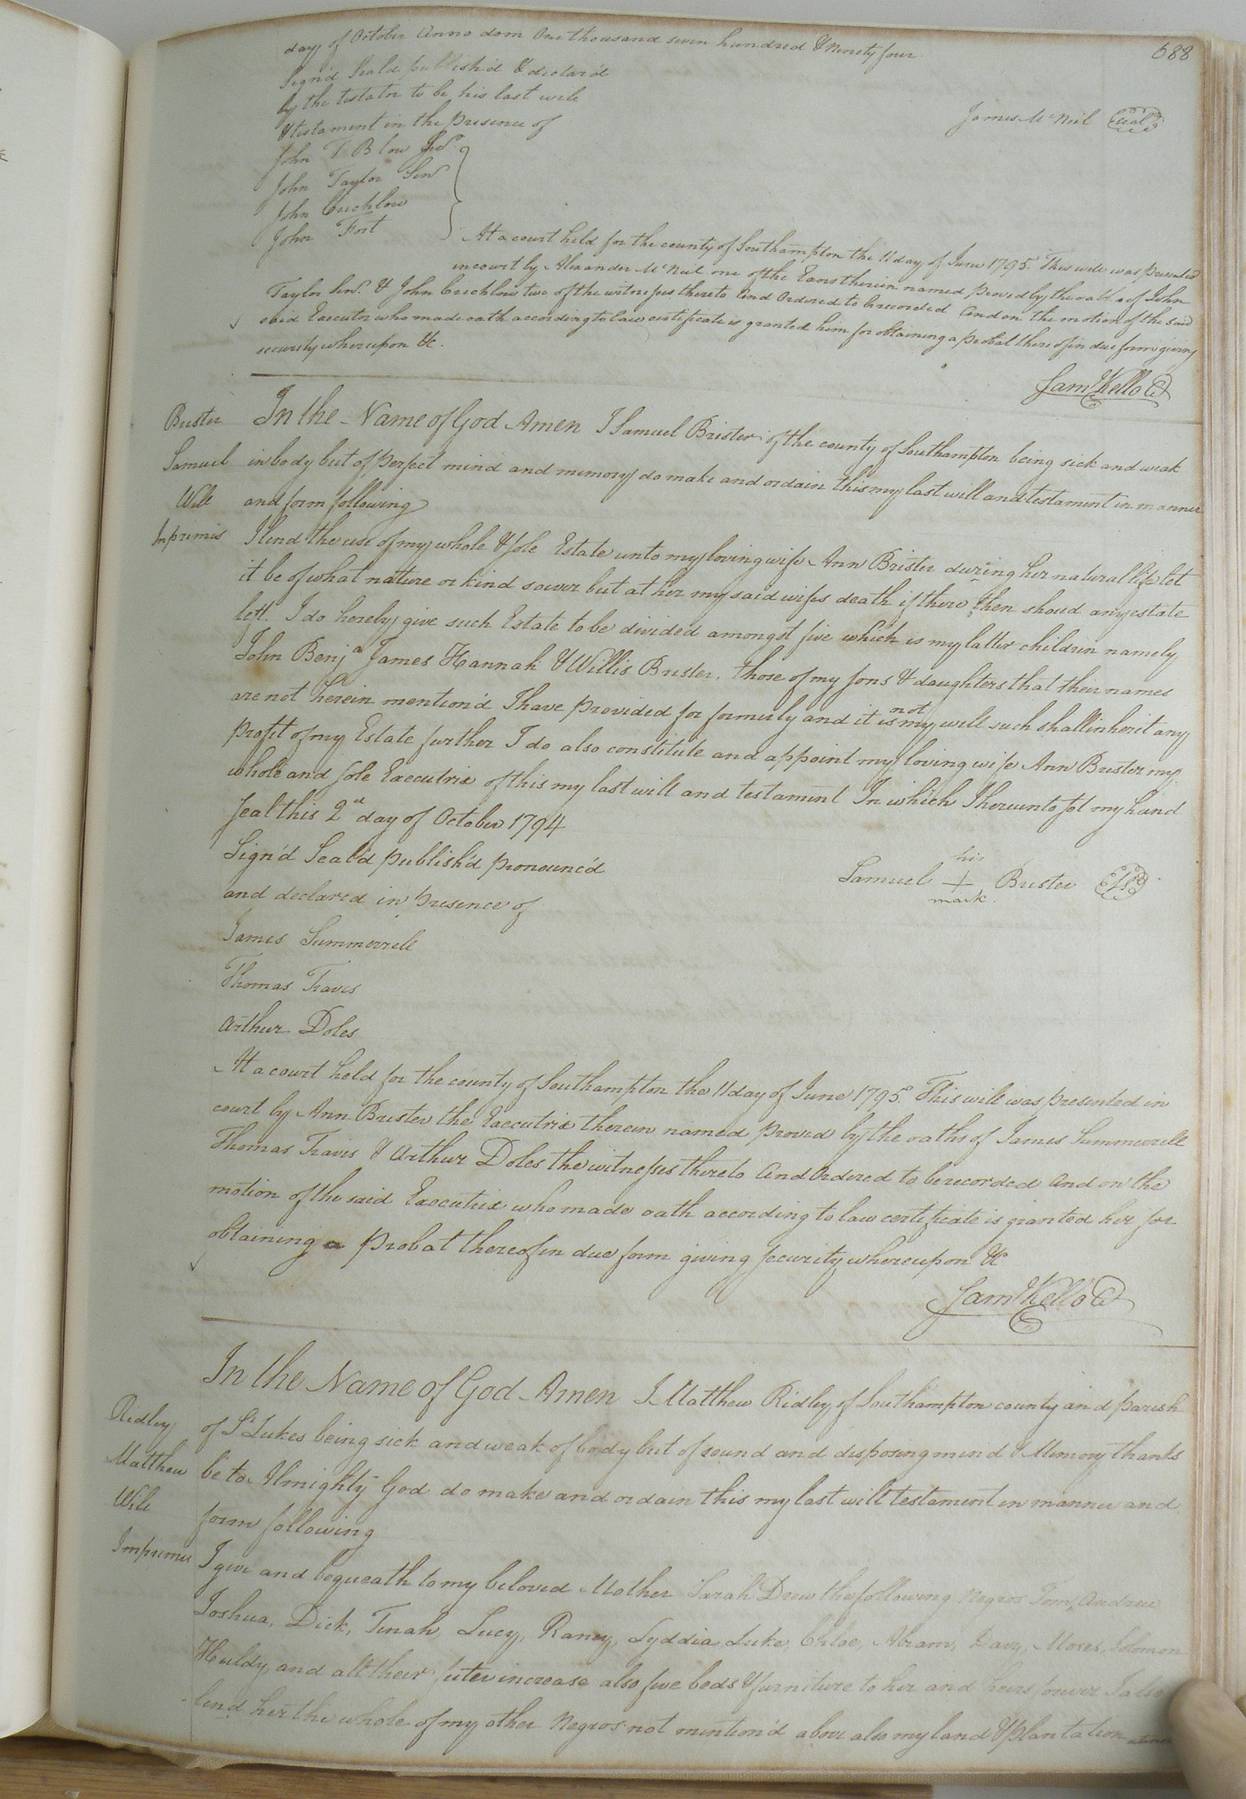 688
day of October Anno dom One thousand seven hundred & Ninety four
Sign'd Seal'd publish'd & declar'd
by the testator to be his last will
& testament in the Presence of
James McNeil seal
John T Blow Jnr
John Taylor Senr
John Crichlow
John Fort
At a court held for the county of Southampton the 11 day of June 1795 This will was Presented
in court by Alexander McNeil one of the Exors therein named Proved by the oaths of John
Taylor Senr. & John Crichlow two of the witnesses thereto And Ordered to be recorded And on the motion of the said
said Executor who made oath according to law certificate is granted him for obtaining a Probat thereof in due form giving
security whereupon &c.
Saml Kello C
Brister
Samuel
Will
In the Name of God Amen I Samuel Brister of the county of Southampton being sick and weak
in body but of perfect mind and memory do make and ordain this my last will and testament in manner
and form following
Inprimis I lend the use of my whole & sole Estate unto my loving wife Ann Brister during her natural life let
it be of what nature or kind soever but at her my said wifes death if there then shoud any estate
left. I do hereby give such Estate to be divided amongst five which is my latter children namely
John Benja James Hannah & Willis Brister. those of my sons & daughters that their names
are not herein mention'd I have provided for formerly and it is not my will such shall inherit any
Profit of my Estate further I do also constitute and appoint my loving wife Ann Brister my
whole and sole Executrix of this my last will and testament In which I hereunto set my hand
seal this 2d day of October 1794
Sign'd Seal'd publish'd pronounc'd
and declared in presence of
his
Samuel + Brister LS
mark
James Summerell
Thomas Travis
Arthur Doles
At a court held for the county of Southampton the 11 day of June 1795 This will was presented in
court by Ann Brister the Executrix therein named Proved by the oaths of James Summerrell
Thomas Travis & Arthur Doles the witnesses thereto And Ordered to be recorded And on the
motion of the said Executrix who made oath according to law certificate is granted her for
obtaining a Probat thereof in due form giving security whereupon &c
Saml Kello C
Ridley
Matthew
Will
In the Name of God Amen I Matthew Ridley of Southampton county and parish
of St Lukes being sick and weak of body but of sound and disposing mind & Memory thanks
be to Almighty God do make and ordain this my last will testament in manner and
form following
Imprimis I give and bequeath to my beloved Mother Sarah Drew the following Negros Tom, Andrew
Joshua, Dick, Tinah, Lucy, Raney, Lyddia Luke, Chloe, Abram, Davy, Moses, Solomon
Huldy and all their futer increase also five beds & furniture to her and heirs forever I also
lend her the whole of my other Negros not mention'd above also my land & Plantation